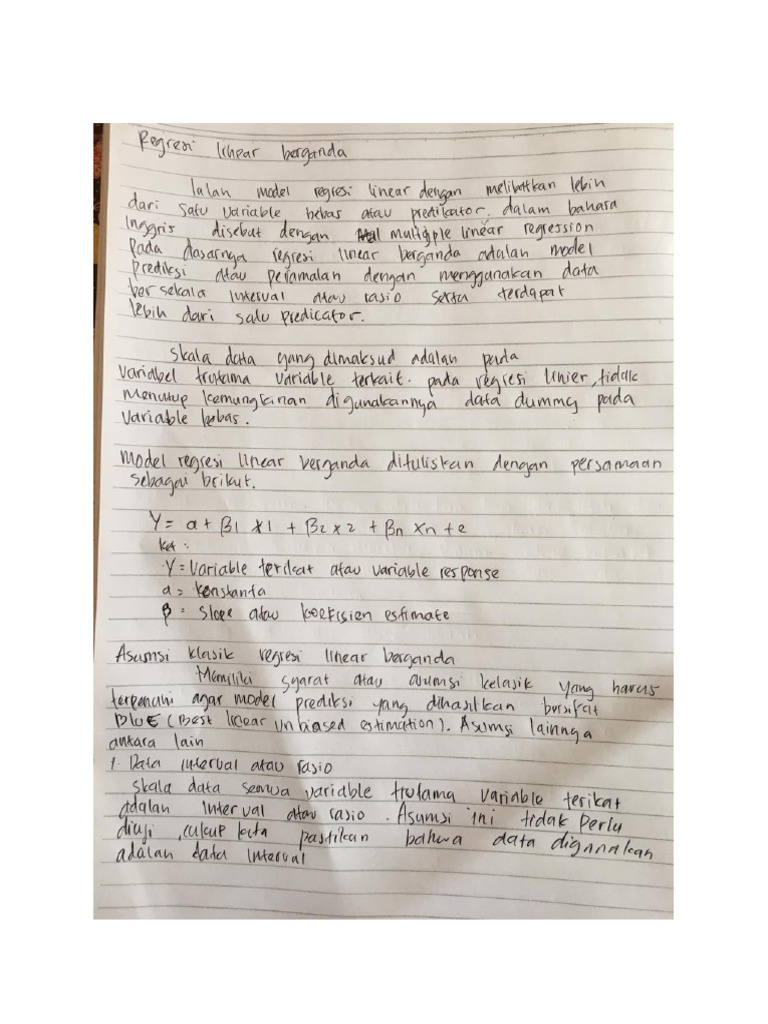 Regresi linear berganda
Ialah model regresi linear dengan melibatkan lebih
dari satu variable bebas atau predikator. dalam bahasa
Inggris disebut dengan multiple linear regression
Pada dasarnya regresi linear berganda adalah model
prediksi atau peramalan dengan menggunakan data
ber sekala interval atau rasio serta terdapat
lebih dari satu predicator.
Skala data yang dimaksud adalah pada
variabel trutama variable terkait. pada regresi linier, tidak
menutup kemungkinan digunakannya data dummy pada
variable bebas.
Model regresi linear berganda dituliskan dengan persamaan
sebagai brikut.
Y = a + β1 x1 + β2 x2 + βn xn + e
ket :
Y = Variable terikat atau variable response
a = konstanta
β = Slope atau koefisien estimate
Asumsi klasik regresi linear berganda
Memiliki syarat atau asumsi kelasik yang harus
terpenuhi agar model prediksi yang dihasilkan bersifat
BLUE (Best linear unbiased estimation). Asumsi lainnya
antara lain
1. Data interval atau rasio
skala data semua variable trutama variable terikat
adalah interval atau rasio. Asumsi ini tidak perlu
diuji, cukup kita pastikan bahwa data digunakan
adalah data interval